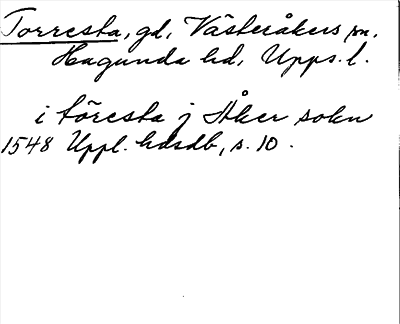 Torresta, gd, Västeråkers sn,
Hagunda hd, Upps. l.
i tóresta j Åker sokn
1548 Uppl. hdsdb, s. 10.